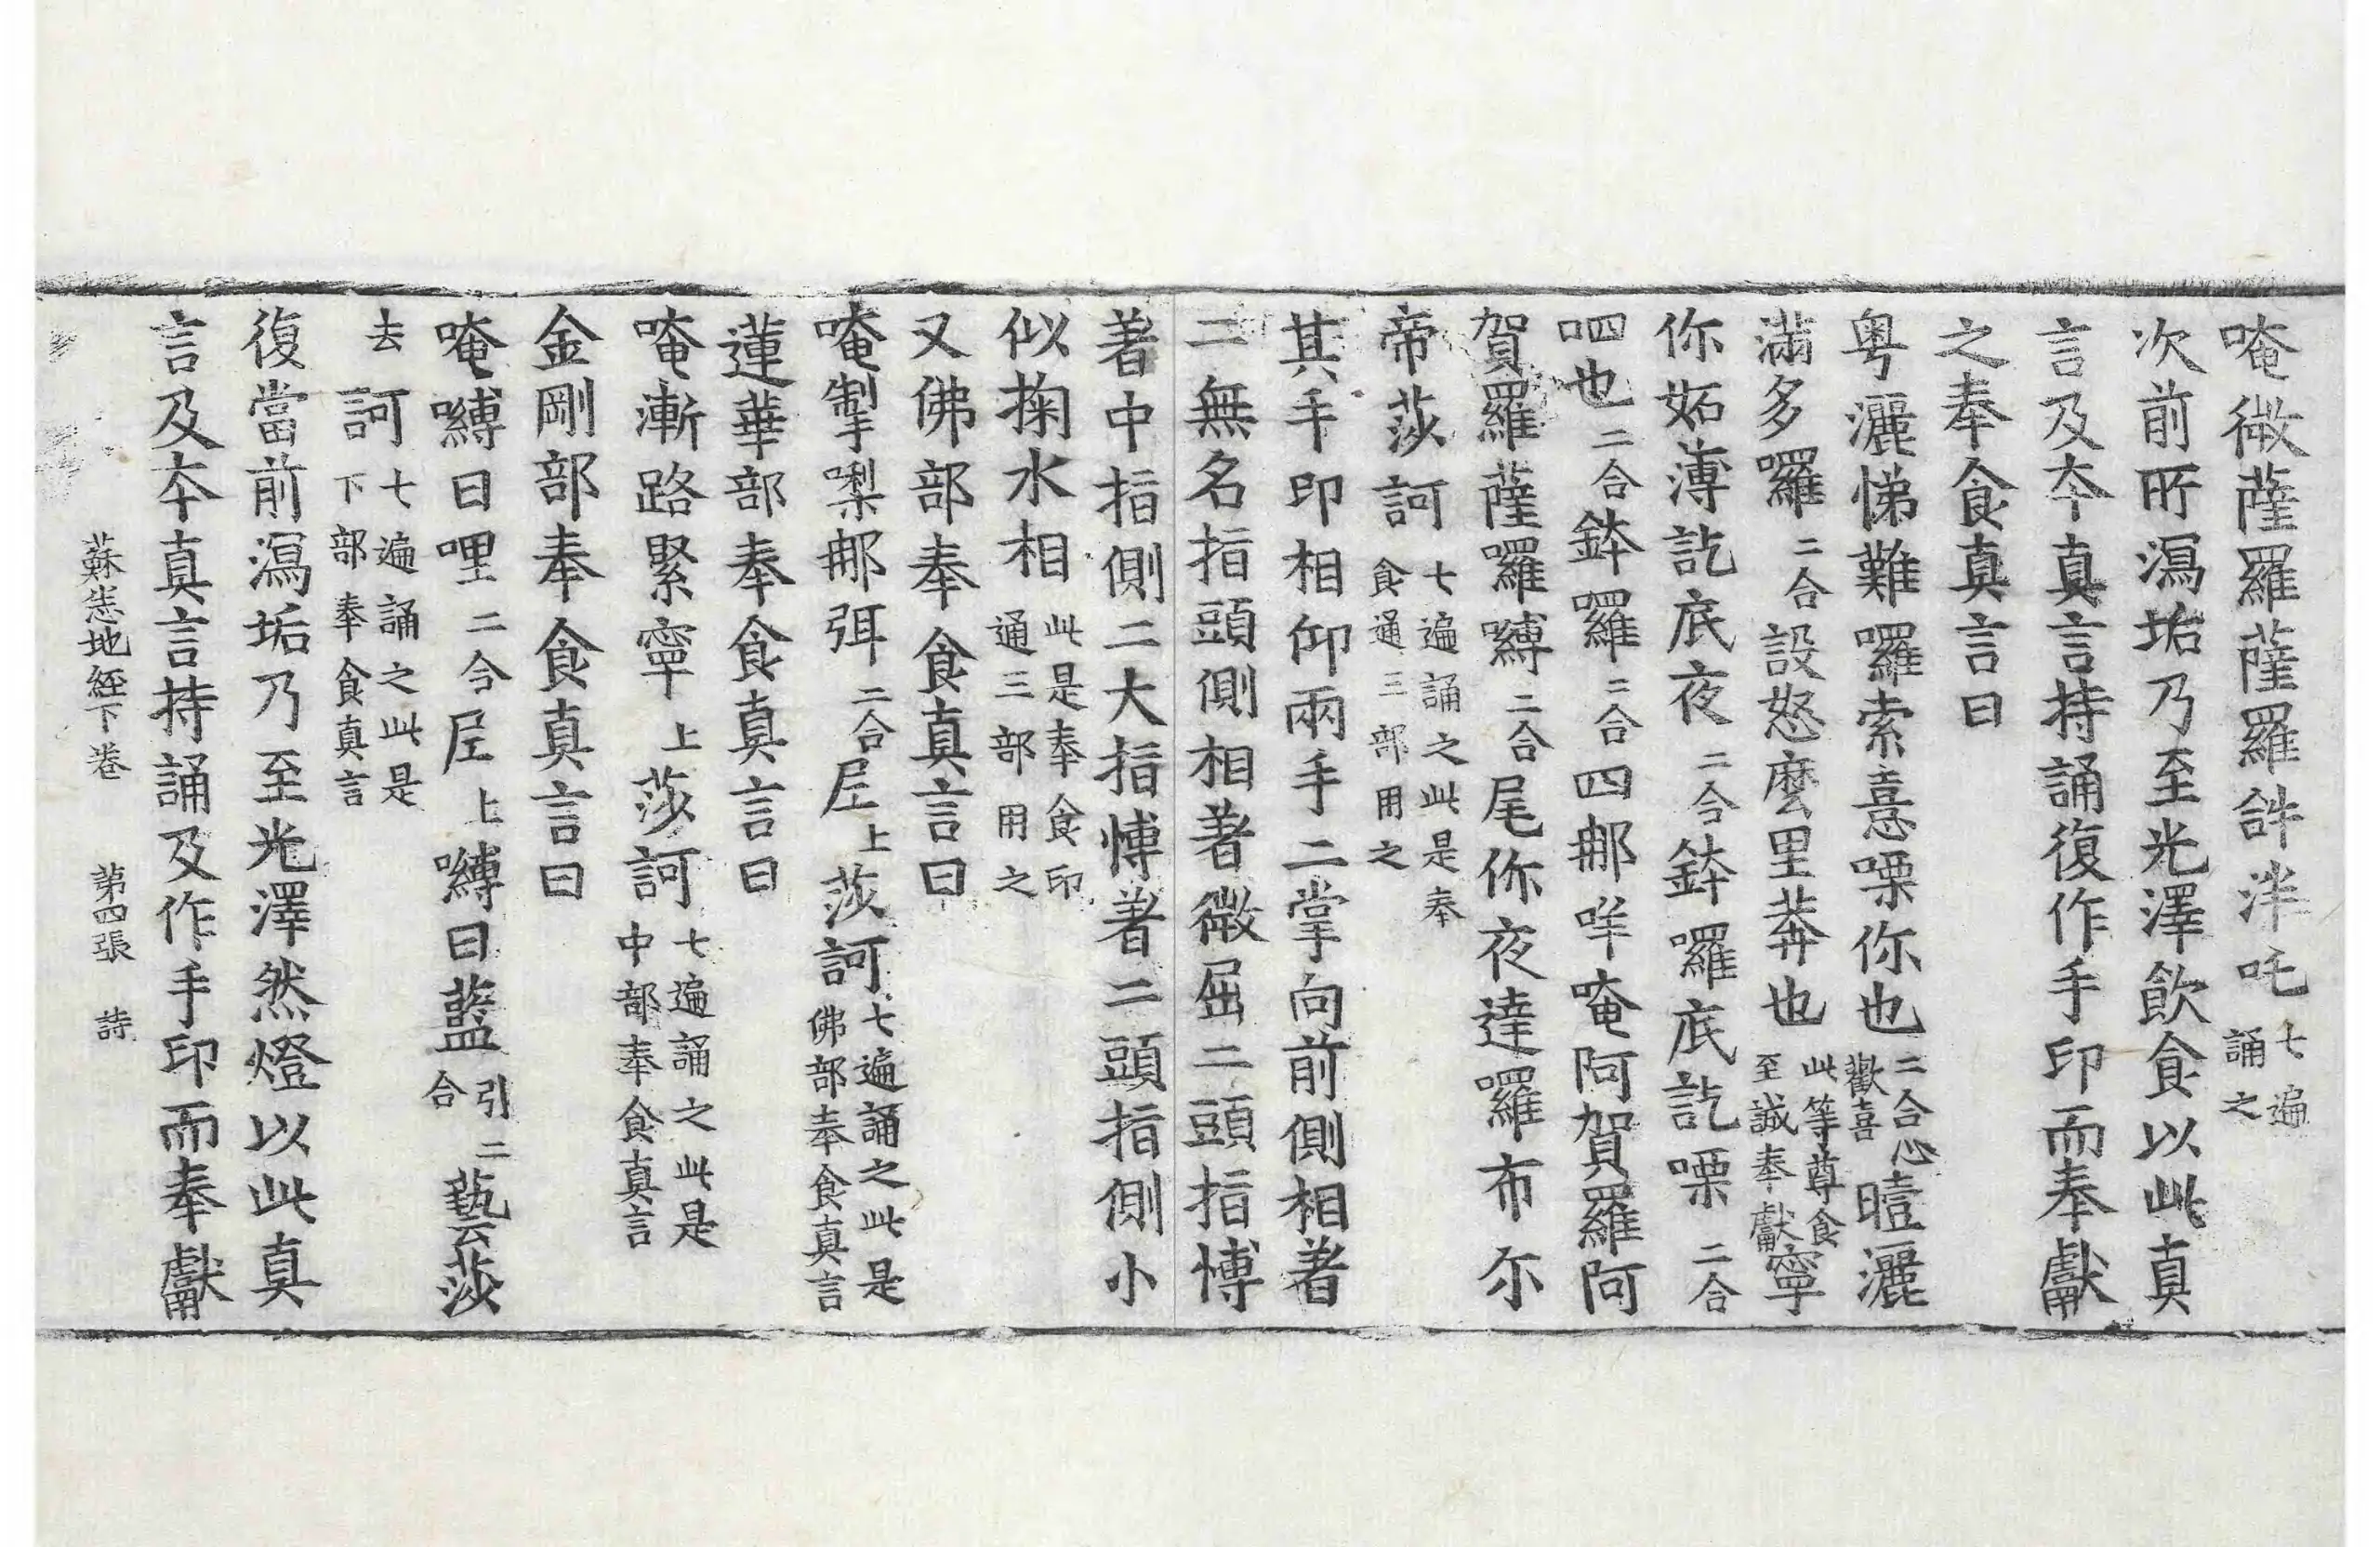 唵微薩羅薩羅䛁泮吒七遍誦之
次前所瀉垢乃至光澤飲食以此真
言及夲真言持誦復作手印而奉獻
之奉食真言曰
粤灑悌難囉索憙㗚你也二合心歡喜曀灑
滿多囉二合設怒麼里莾也此等尊食至誠奉獻寧
你妬溥訖底夜二合鉢囉底訖㗚二合
呬也二合鉢囉二合四郍咩唵阿賀羅阿
賀羅薩囉嚩二合尾你夜達囉布尒
帝莎訶七遍誦之此是奉食通三部用之
其手印相仰兩手二掌向前側相著
二無名指頭側相著微屈二頭指博
著中指側二大指博著二頭指側小
似掬水相此是奉食印通三部用之
又佛部奉食真言曰
唵掣㗚郍弭二合𡰱上莎訶七遍誦之此是佛部奉食真言
蓮華部奉食真言曰
唵漸路緊寧上莎訶七遍誦之此是中部奉食真言
金剛部奉食真言曰
唵嚩日哩二合𡰱上嚩日藍引二合藝莎
去訶七遍誦之此是下部奉食真言
復當前瀉垢乃至光澤然燈以此真
言及夲真言持誦及作手印而奉獻
蘇悉地經下卷 第四張 詩